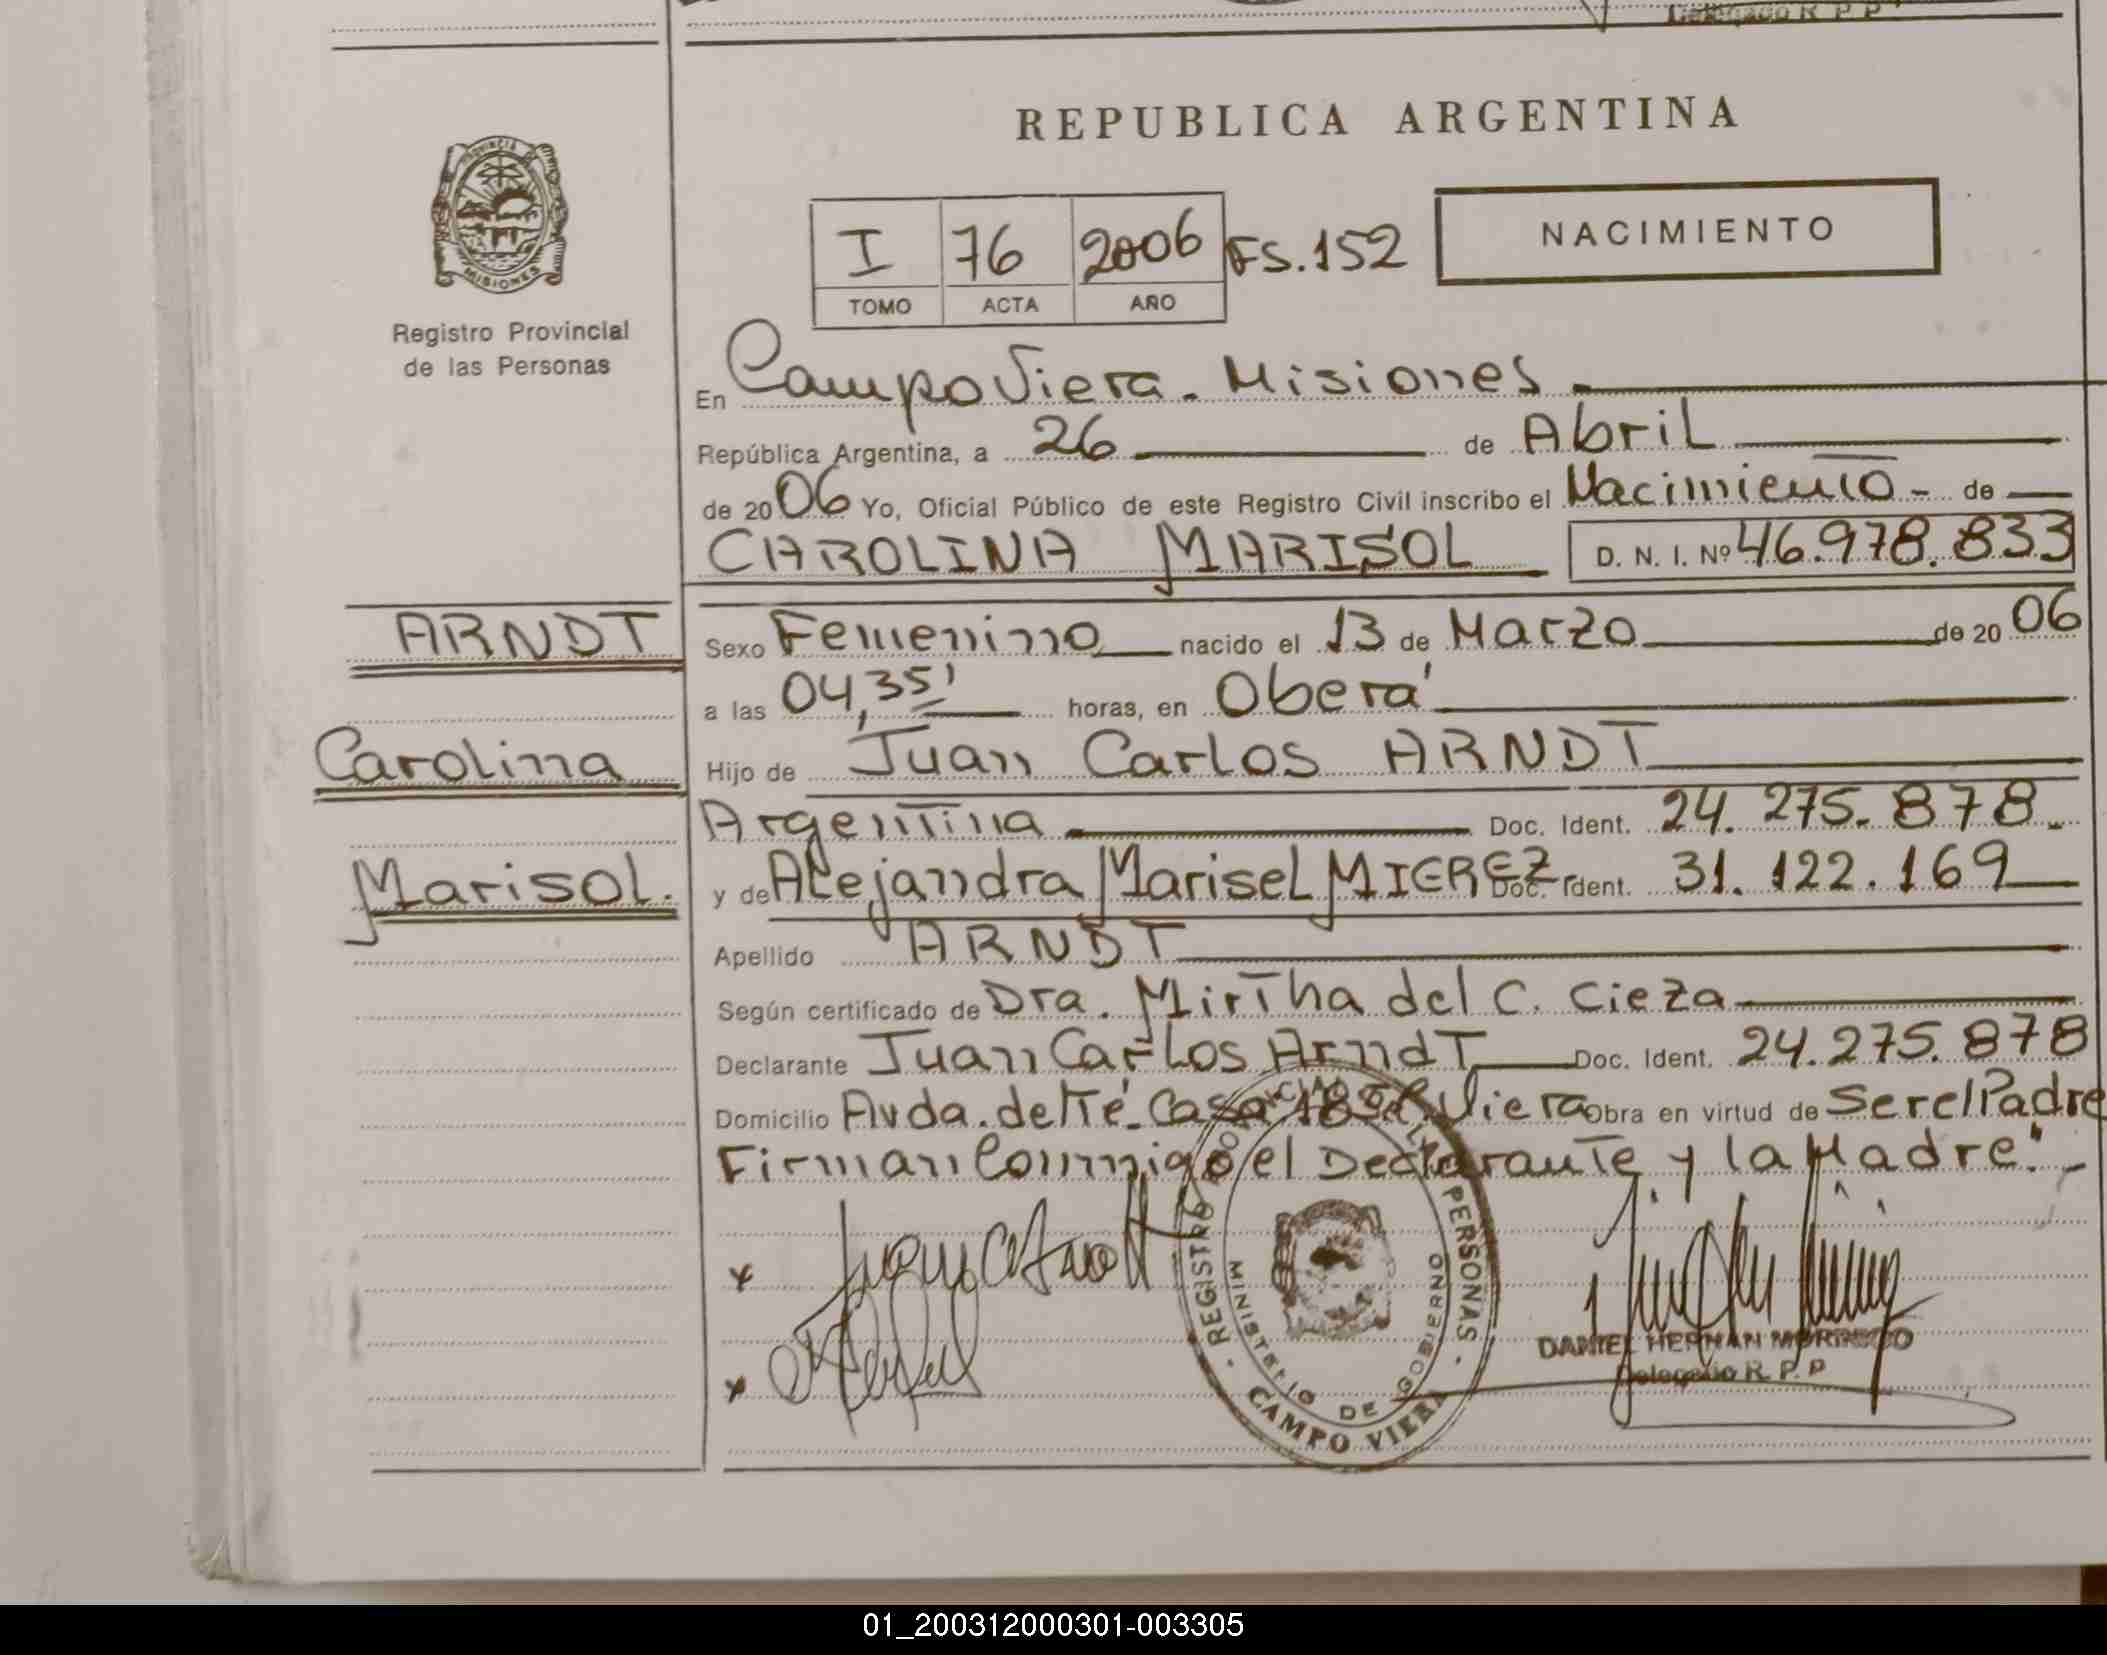 Delegado R. P. P
PROVINCIA DE
MISIONES
Registro Provincial
de las Personas
REPUBLICA ARGENTINA
I 76 2006 FS.152
TOMO ACTA AÑO
NACIMIENTO
En Campo Viera - Misiones
República Argentina, a 26 de Abril
de 2006 Yo, Oficial Público de este Registro Civil inscribo el Nacimiento - de
CAROLINA MARISOL D. N. I. Nº 46.978.833
ARNDT
Carolina
Marisol.
Sexo Femenino nacido el 13 de Marzo de 20 06
a las 04,35' horas, en Oberá
Hijo de Juan Carlos ARNDT
Argentina Doc. Ident. 24.275.878.
y de Alejandra Marisel MIEREZ Doc. Ident. 31.122.169
Apellido ARNDT
Según certificado de Dra. Mirtha del C. Cieza
Declarante Juan Carlos Arndt Doc. Ident. 24.275.878
Domicilio Avda. del Té. Casa 183 C. Viera Obra en virtud de Ser el Padre
Firman Conmigo el Declarante y la Madre".-
REGISTRO PROVINCIAL DE LAS PERSONAS
MINISTERIO DE GOBIERNO
CAMPO VIERA
DANIEL HERNAN
Delegado R. P. P
01_200312000301-003305